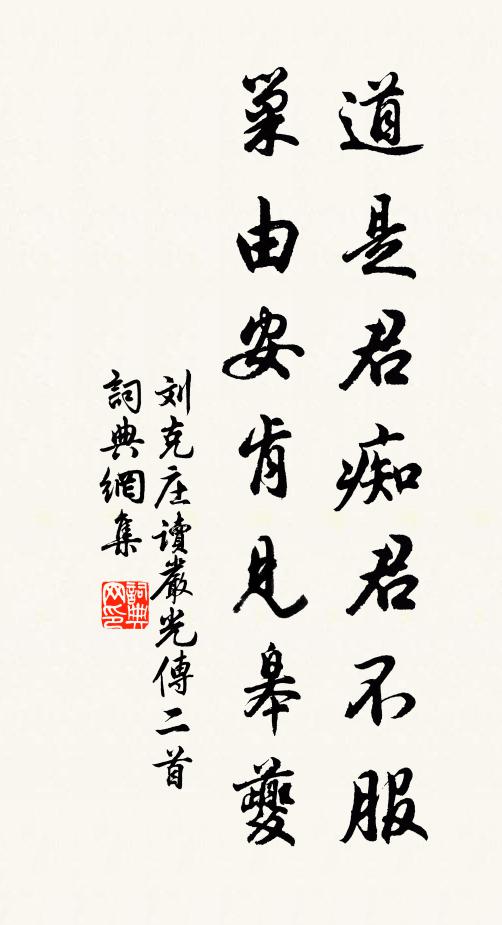 道是君痴君不服
巢由安肯見皋夔
刘克庄讀嚴光傳二首
詞典網集
詞典网印